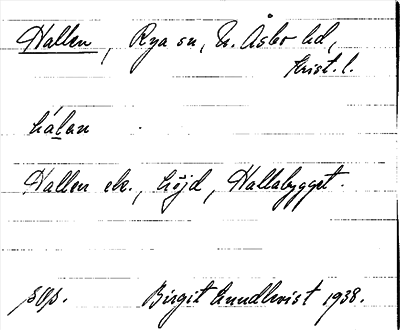 Hallen, Rya sn, N. Åsbo hd,
Krist. l.
hálan
Hallen ek., höjd, Hallabygget.
Birgit Sundkvist 1938.